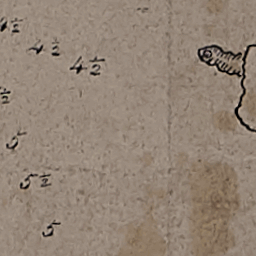 4½
4½
4½
½
5
5½
5